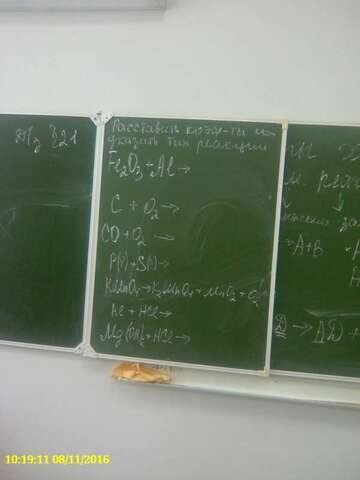 Д/з §21
Расставить коэф-ты и
указать тип реакции
Fe₂O₃ + Al →
C + O₂ →
CO + O₂ →
P(V) + S(II) →
KMnO₄ → K₂MnO₄ + MnO₂ + O₂↑
Al + HCl →
Mg(OH)₂ + HCl →
→ A+B
→ AD +
10:19:11 08/11/2016